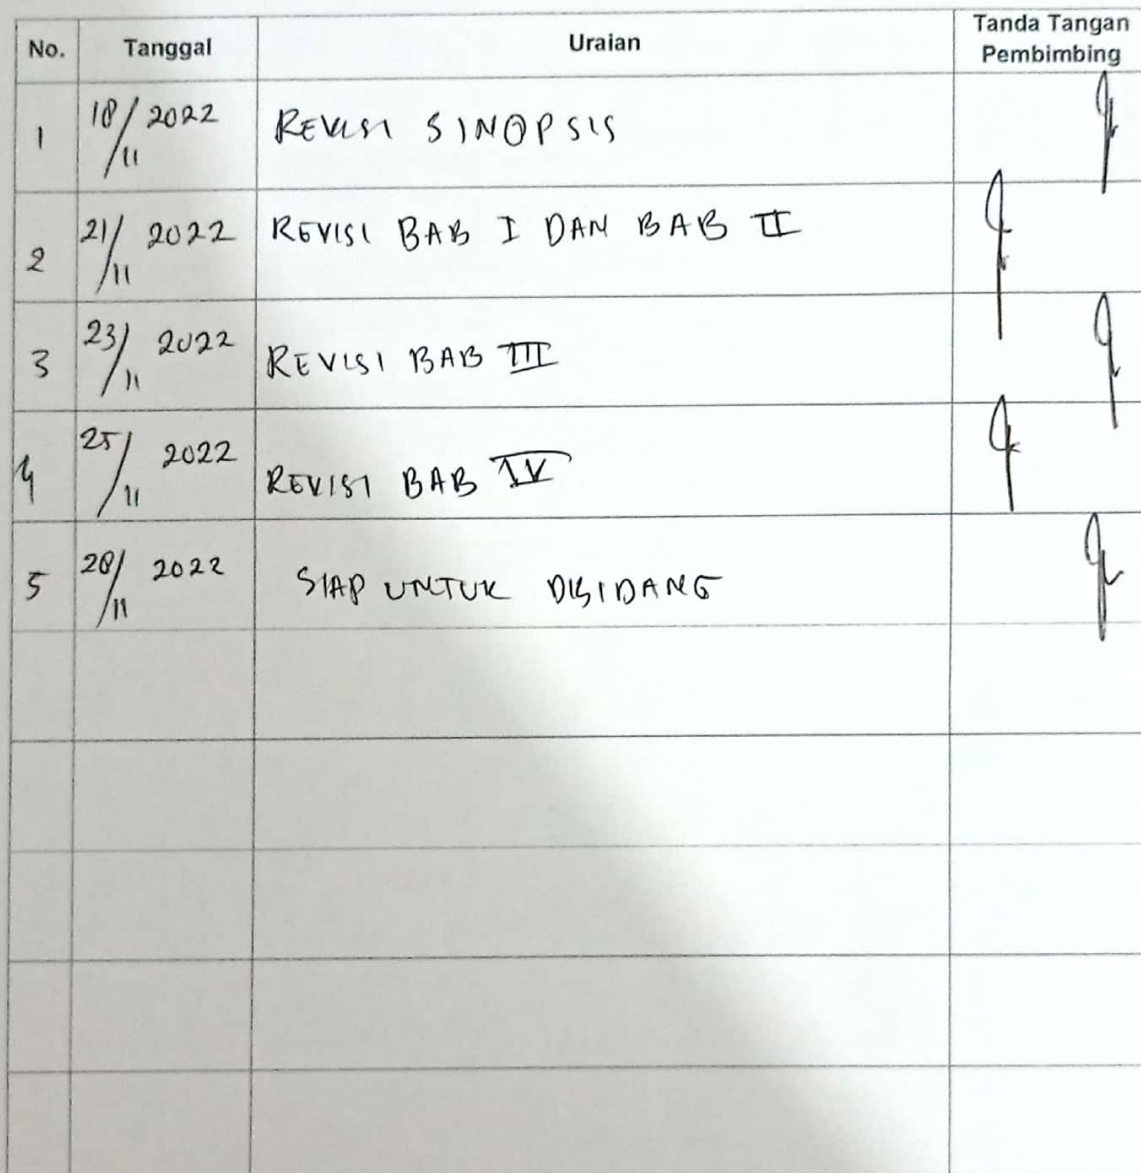 No. Tanggal Uraian Tanda Tangan Pembimbing
1 18/11 2022 REVISI SINOPSIS
2 21/11 2022 REVISI BAB I DAN BAB II
3 23/11 2022 REVISI BAB III
4 25/11 2022 REVISI BAB IV
5 28/11 2022 SIAP UNTUK DISIDANG